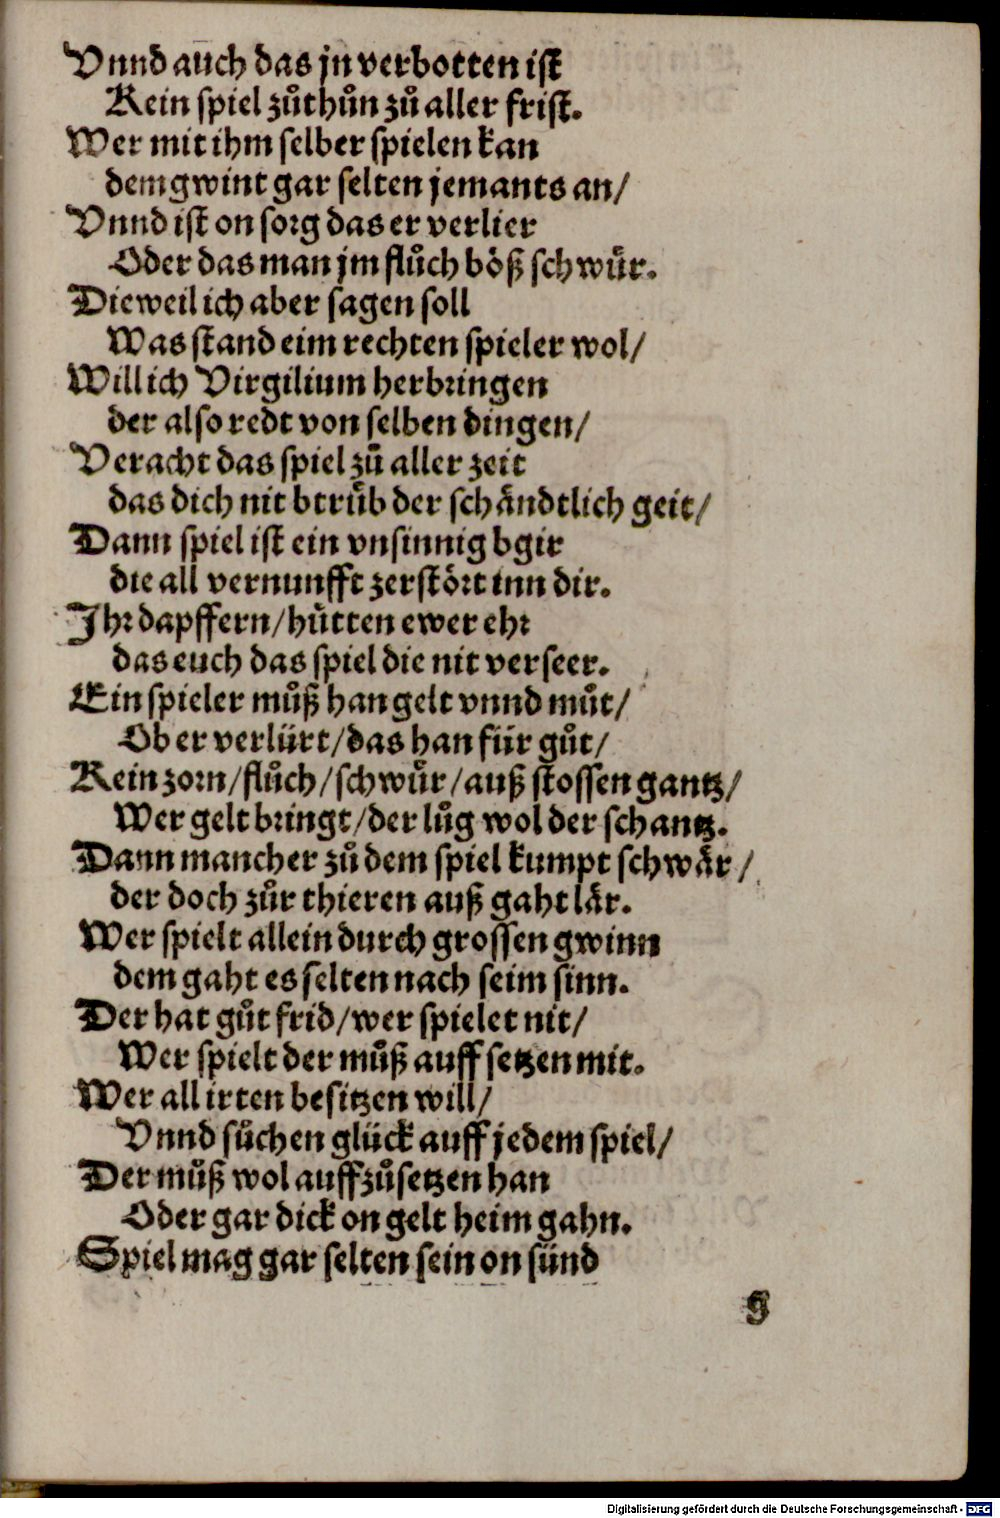 Vnnd auch das jn verbotten ist
Kein spiel zuͦthuͦn zuͦ aller frist.
Wer mit ihm selber spielen kan
dem gwint gar selten jemants an/
Vnnd ist on sorg das er verlier
Oder das man jm fluͦch boͤß schwuͤr.
Dieweil ich aber sagen soll
Was stand eim rechten spieler wol/
Will ich Virgilium herbringen
der also redt von selben dingen/
Veracht das spiel zuͦ aller zeit
das dich nit btruͤb der schaͤndtlich geit/
Dann spiel ist ein vnsinnig bgir
die all vernunfft zerstoͤrt inn dir.
Ihr dapffern/huͤtten ewer ehr
das euch das spiel die nit verseer.
Ein spieler muͦß han gelt vnnd muͦt/
Ob er verlürt/das han für guͦt/
Kein zorn/fluͦch/schwuͤr/auß stossen gantz/
Wer gelt bringt/der luͦg wol der schantz.
Dann mancher zuͦ dem spiel kumpt schwaͤr/
der doch zuͦr thieren auß gaht laͤr.
Wer spielt allein durch grossen gwinn
dem gaht es selten nach seim sinn.
Der hat guͦt frid/wer spielet nit/
Wer spielt der muͦß auff setzen mit.
Wer all irten besitzen will/
Vnnd suͦchen glück auff jedem spiel/
Der muͦß wol auffzuͦsetzen han
Oder gar dick on gelt heim gahn.
Spiel mag gar selten sein on sünd
g
Digitalisierung gefördert durch die Deutsche Forschungsgemeinschaft - DFG